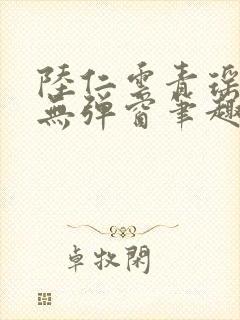 陸仁雲青瑤
無彈窗筆趣
卓牧閑